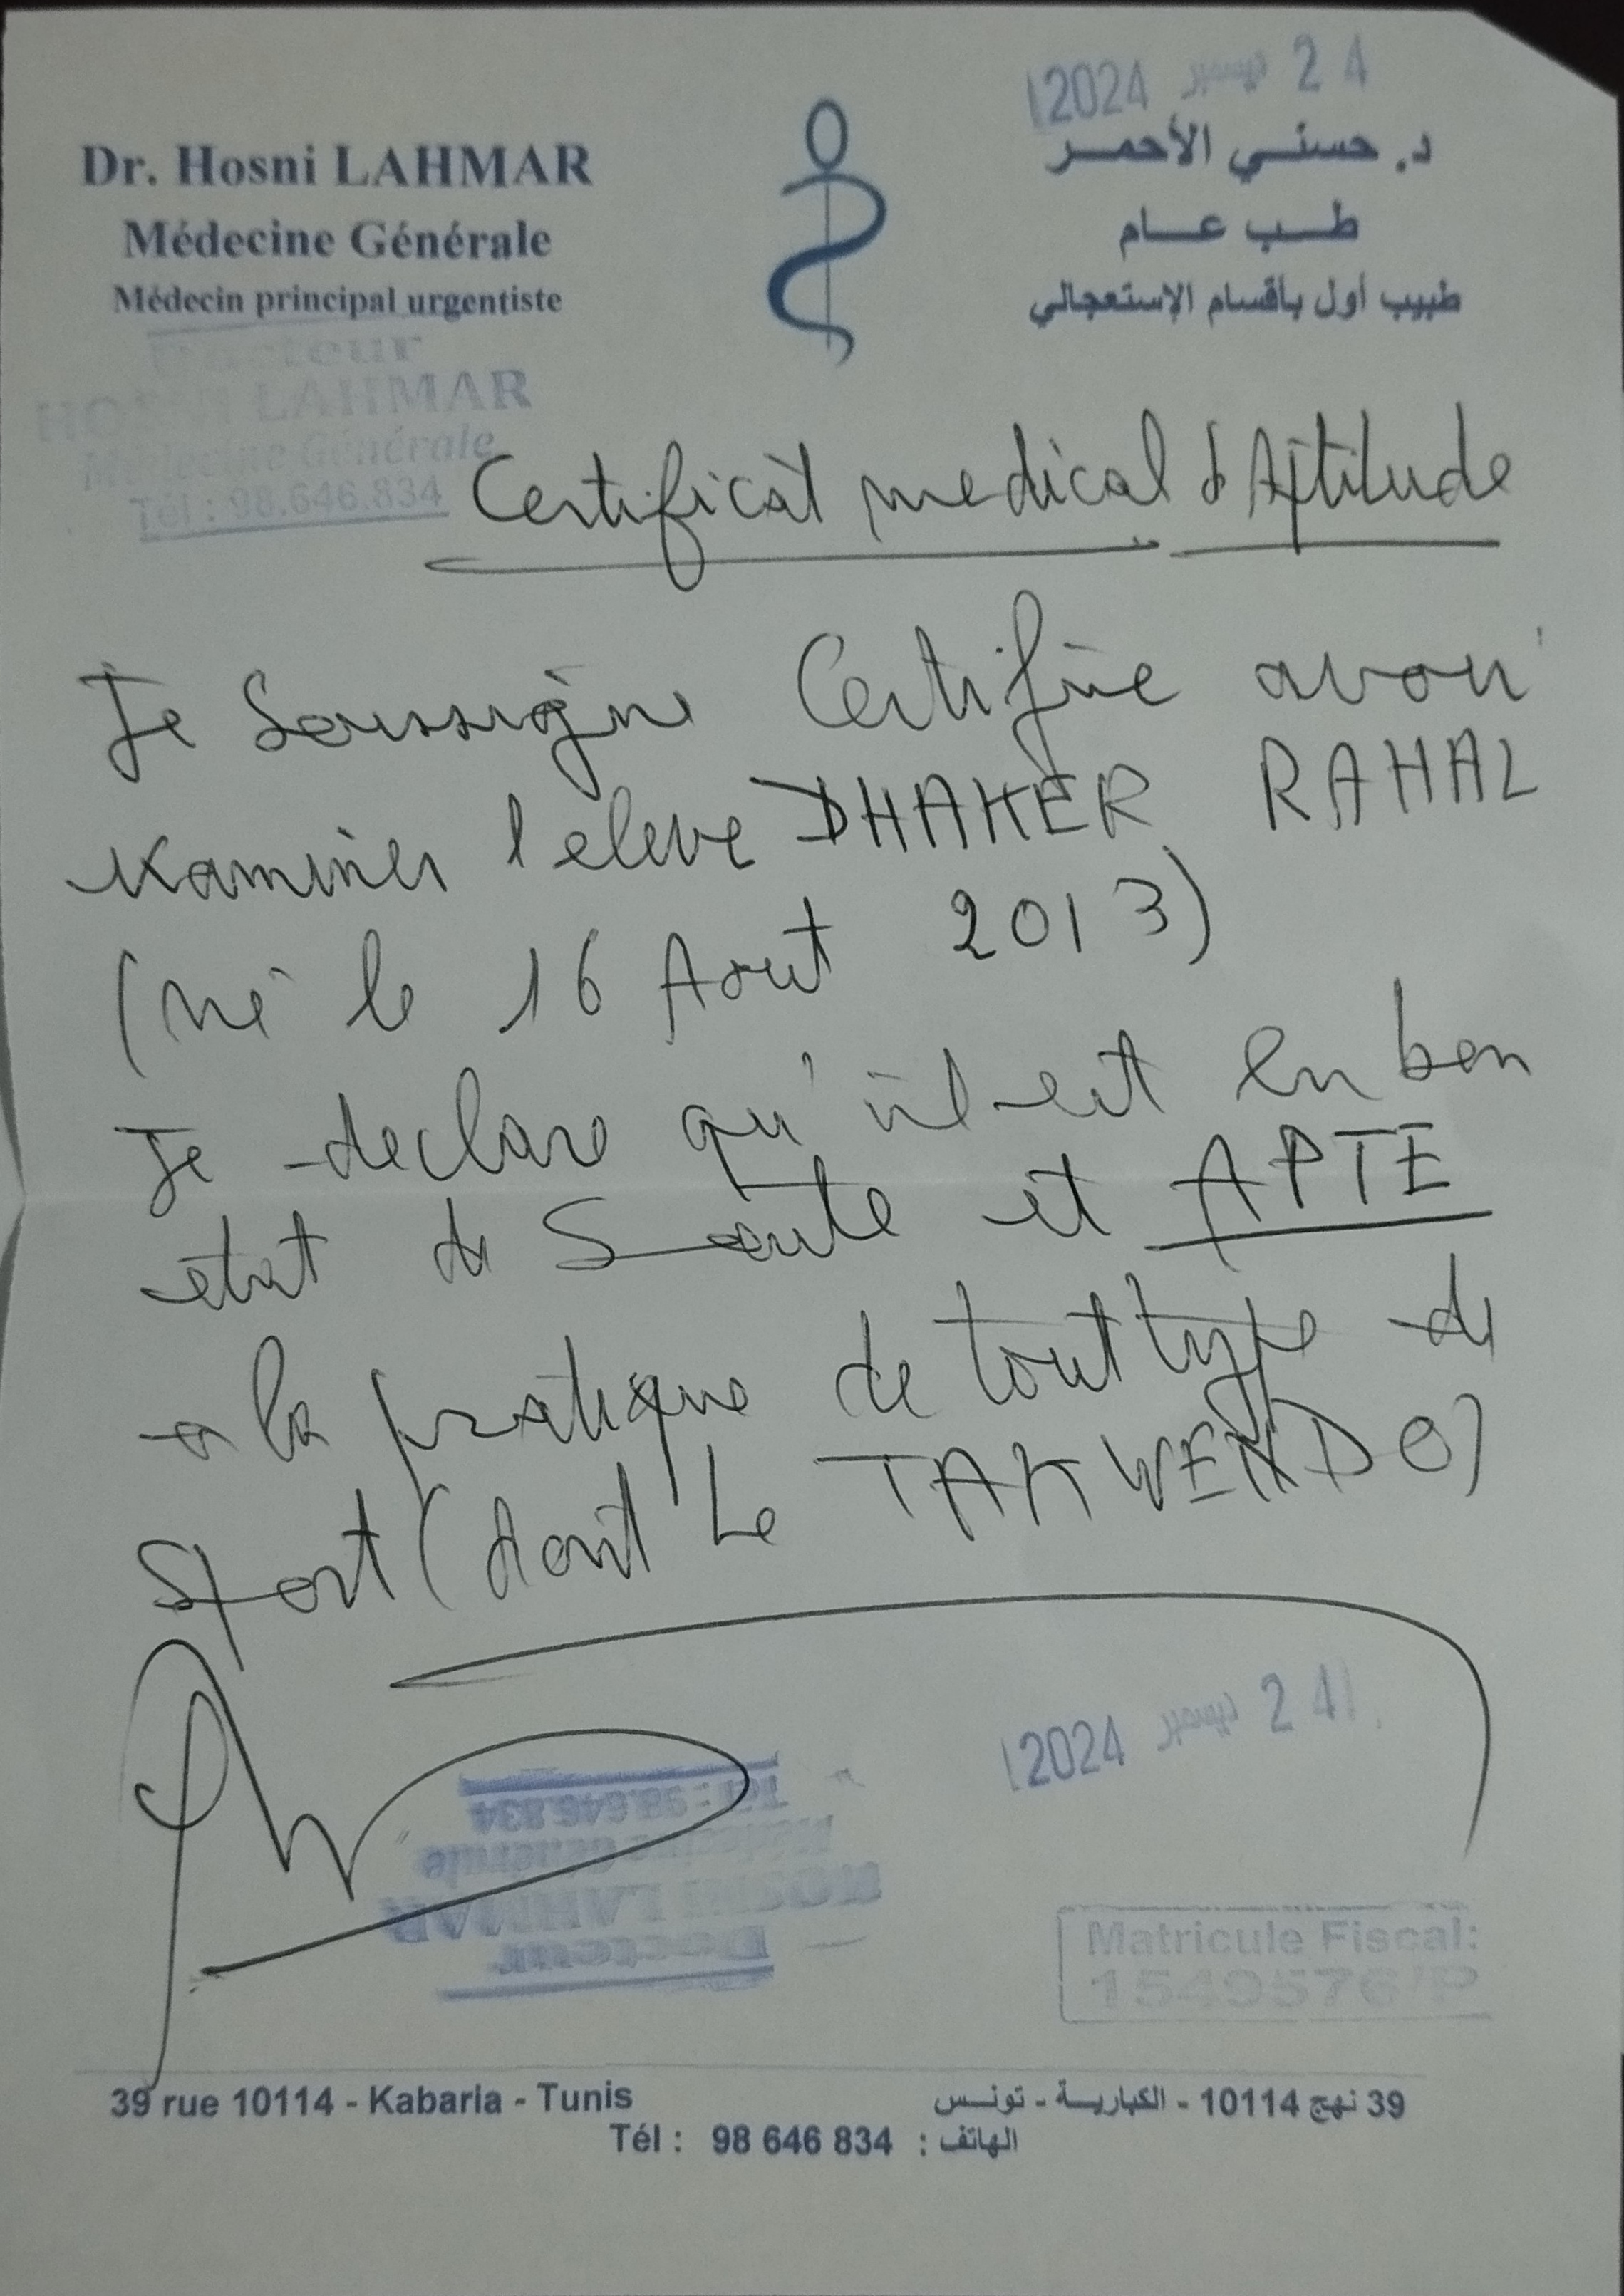 2024 ديسمبر 24
Dr. Hosni LAHMAR
Médecine Générale
Médecin principal urgentiste
د. حسني الأحمر
طب عام
طبيب أول بأقسام الإستعجالي
Docteur
HOSNI LAHMAR
Médecine Générale
Tél : 98.646.834
Certificat medical d'Aptitude
Je soussigne Certifie avoir
examiner l'eleve DHAKER RAHAL
(né le 16 Aout 2013)
Je declare qu'il est en bon
etat de Sante et APTE
a la pratique de tout type de
Sport (dont Le TAKWENDO)
2024 ديسمبر 24
Tél : 98.646.834
Médecine Générale
HOSNI LAHMAR
Docteur
Matricule Fiscal:
1549576/P
39 rue 10114 - Kabaria - Tunis
39 نهج 10114 - الكبارية - تونس
Tél : 98 646 834 : الهاتف